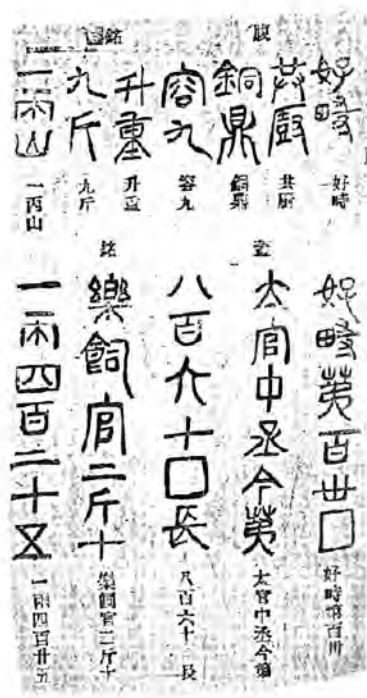 腹銘
好畤
共廚
銅鼎
容九
升重
九斤
一兩山
好時
共廚
銅鼎
容九
升重
九斤
一丙山
蓋銘
好畤第百卅□
太官中丞令第
八百六十□長
樂飼官二斤十
一兩四百二十五
好時第百卅
太官中丞令第
八百六十 長
樂飼官二斤十
一兩四百廿五